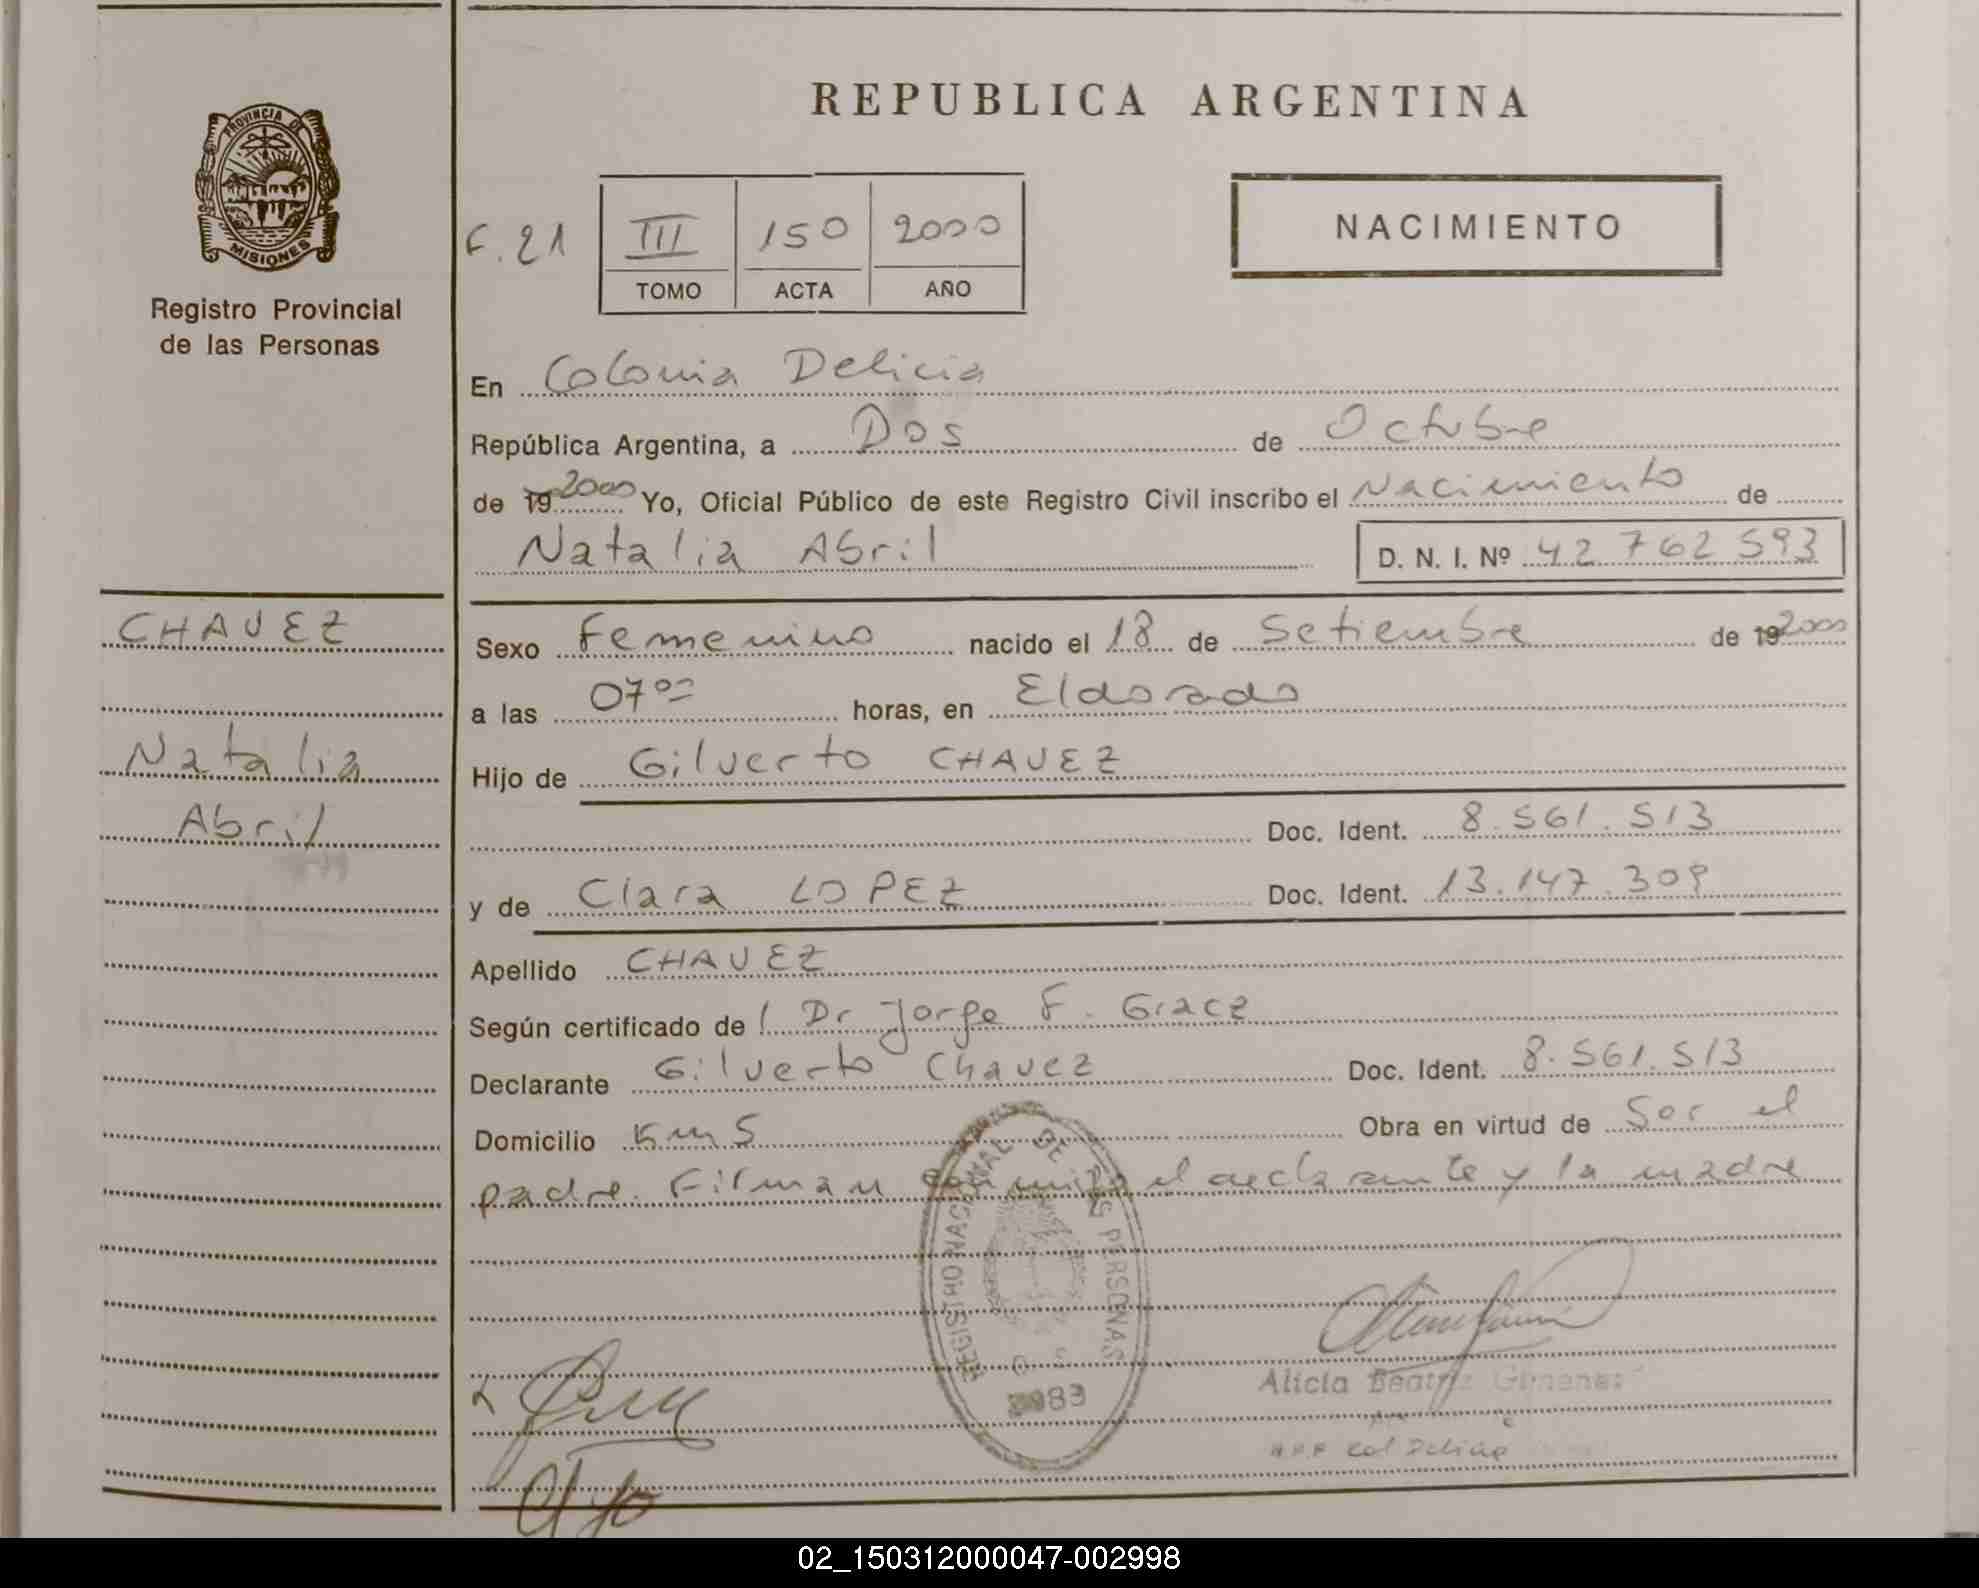 REPUBLICA ARGENTINA
PROVINCIA DE
MISIONES
Registro Provincial
de las Personas
F. 21
III 150 2000
TOMO ACTA AÑO
NACIMIENTO
En Colonia Delicia
República Argentina, a Dos de Octubre
de 19 2000 Yo, Oficial Público de este Registro Civil inscribo el Nacimiento de
Natalia Abril D. N. I. Nº 42 762 593
CHAVEZ
Natalia
Abril
Sexo Femenino nacido el 18 de Setiembre de 19 2000
a las 07 00 horas, en Eldorado
Hijo de Gilverto CHAVEZ
Doc. Ident. 8.561.513
y de Clara LOPEZ Doc. Ident. 13.147.309
Apellido CHAVEZ
Según certificado de l Dr Jorge F. Gracz
Declarante Gilverto Chavez Doc. Ident. 8.561.513
Domicilio Km 5 Obra en virtud de Ser el
padre. Firman conmigo el declarante y la madre
REGISTRO NACIONAL DE LAS PERSONAS
Alicia Beatriz
Col Delicia
02_150312000047-002998